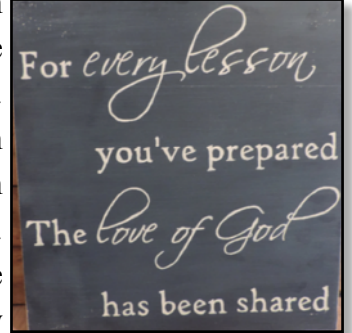 For every lesson
you've prepared
The love of God
has been shared